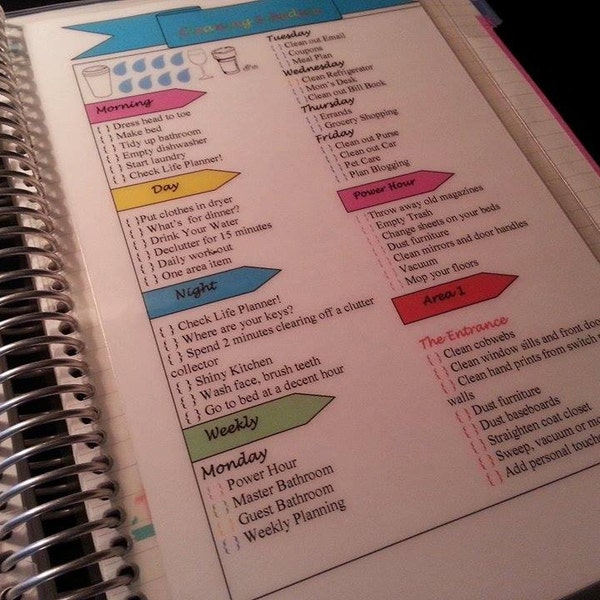 Morning
{ } Dress head to toe
{ } Make bed
{ } Tidy up bathroom
{ } Empty dishwasher
{ } Start laundry
{ } Check Life Planner!
Day
{ }Put clothes in dryer
{ } What's for dinner?
{ } Drink Your Water
{ } Declutter for 15 minutes
{ } Daily workout
{ } One area item
Night
{ } Check Life Planner!
{ } Where are your keys?
{ } Spend 2 minutes clearing off a clutter
collector
{ } Shiny Kitchen
{ } Wash face, brush teeth
{ } Go to bed at a decent hour
Weekly
Monday
{ } Power Hour
{ } Master Bathroom
{ } Guest Bathroom
{ } Weekly Planning
Tuesday
{ } Clean out Email
{ } Coupons
{ } Meal Plan
Wednesday
{ } Clean Refrigerator
{ } Mom's Desk
{ } Clean out Bill Book
Thursday
{ } Errands
{ } Grocery Shopping
Friday
{ } Clean out Purse
{ } Clean out Car
{ } Pet Care
{ } Plan Blogging
Power Hour
{ } Throw away old magazines
{ } Empty Trash
{ } Change sheets on your beds
{ } Dust furniture
{ } Clean mirrors and door handles
{ } Vacuum
{ } Mop your floors
Area 1
The Entrance
{ } Clean cobwebs
{ } Clean window sills and front door
{ } Clean hand prints from switch
walls
{ } Dust furniture
{ } Dust baseboards
{ } Straighten coat closet
{ } Sweep, vacuum or
{ } Add personal touche